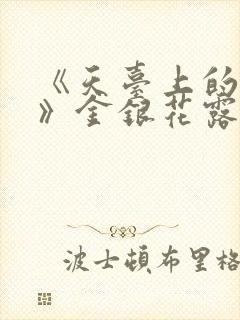 《天臺上的
》金銀花露
波士頓布里格